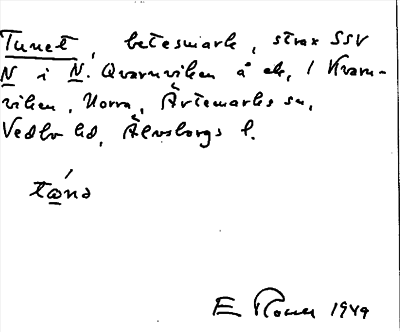 Tunet, betesmark, strax SSV
N i N. Qvarnviken å ek, 1 Kvarn-
viken, Norra, Ärtemarks sn,
Vedbo hd, Älvsborgs l.
E 1949